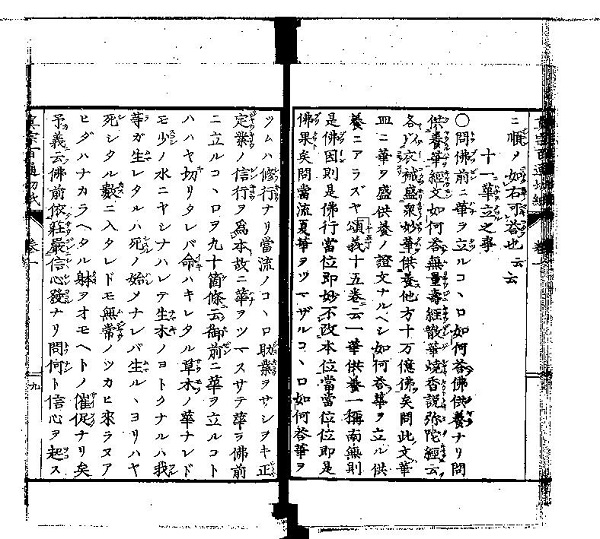 ニ順メ如右可答也云云
十一華立之事
〇問佛前ニ華ヲ立ルコヽロ如何答佛供養ナリ問
供養華經文如何答無量壽經散華燒香説弥陀經云
各以衣裓盛衆妙華供養他方十万億佛矣問此文華
皿ニ華ヲ盛供養ノ證文ナルベシ如何答華ヲ立ル供
養ニアラズヤ頌義十五卷云一華供養一稱南無則
是佛因則是佛行當位即妙不改本位當位位即是
佛果矣問當流夏華ヲツマザルコヽロ如何答華ヲ
ツムハ修行ナリ當流ノコヽロ助業ヲサシヲキ正
定業ノ信行ヲ為本故ニ華ヲツマスサテ華ヲ佛前
ニ立ルコヽロヲ九十箇條云御前ニ華ヲ立ルコト
ハハヤ切リタレバ命ハキレタル草木ノ華ナレド
モ少ノ水ニヤシナハレテ生木ノヨトクナルハ我
等ガ生レタルハ死ノ始メナレバ生ルヽヨリハヤ
死シタル數ニ入タレドモ無常ノツカヒ來ラヌア
ヒダハナカラヘタル射ヲオモヘトノ催促ナリ矣
予義云佛前依荘嚴信心發ナリ問何ト信心ヲ起ス
眞宗百通切紙
卷一
九